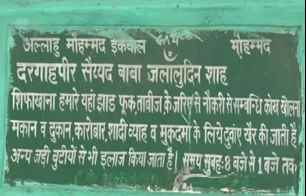 अल्लाह मोहम्मद इकबाल मोहम्मद
दरगाहपीर सैय्यद बाबा जलालुदिन शाह
शिफाखाना हमारे यहां झाड फूक ताबीज के जरिए से नौकरी से सम्बन्धि कोख खोलना
मकान व दुकान, कारोबार, शादी व्याह व मुकदमों के लिये दुवाए खैर की जाती है
अन्य जडी बुटीयों से भी इलाज किया जाता है। समय सुबहः 8 बजे से 1 बजे तक